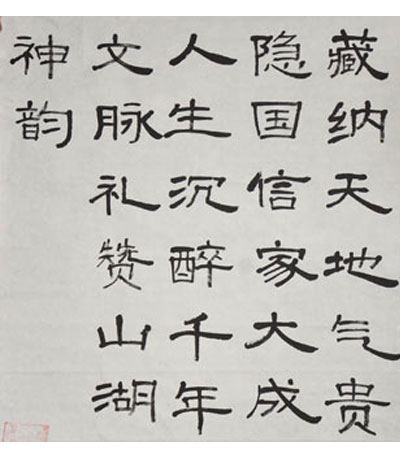 藏纳天地气贵
隐国信家大成
人生沉醉千年
文脉礼赞山湖
神韵